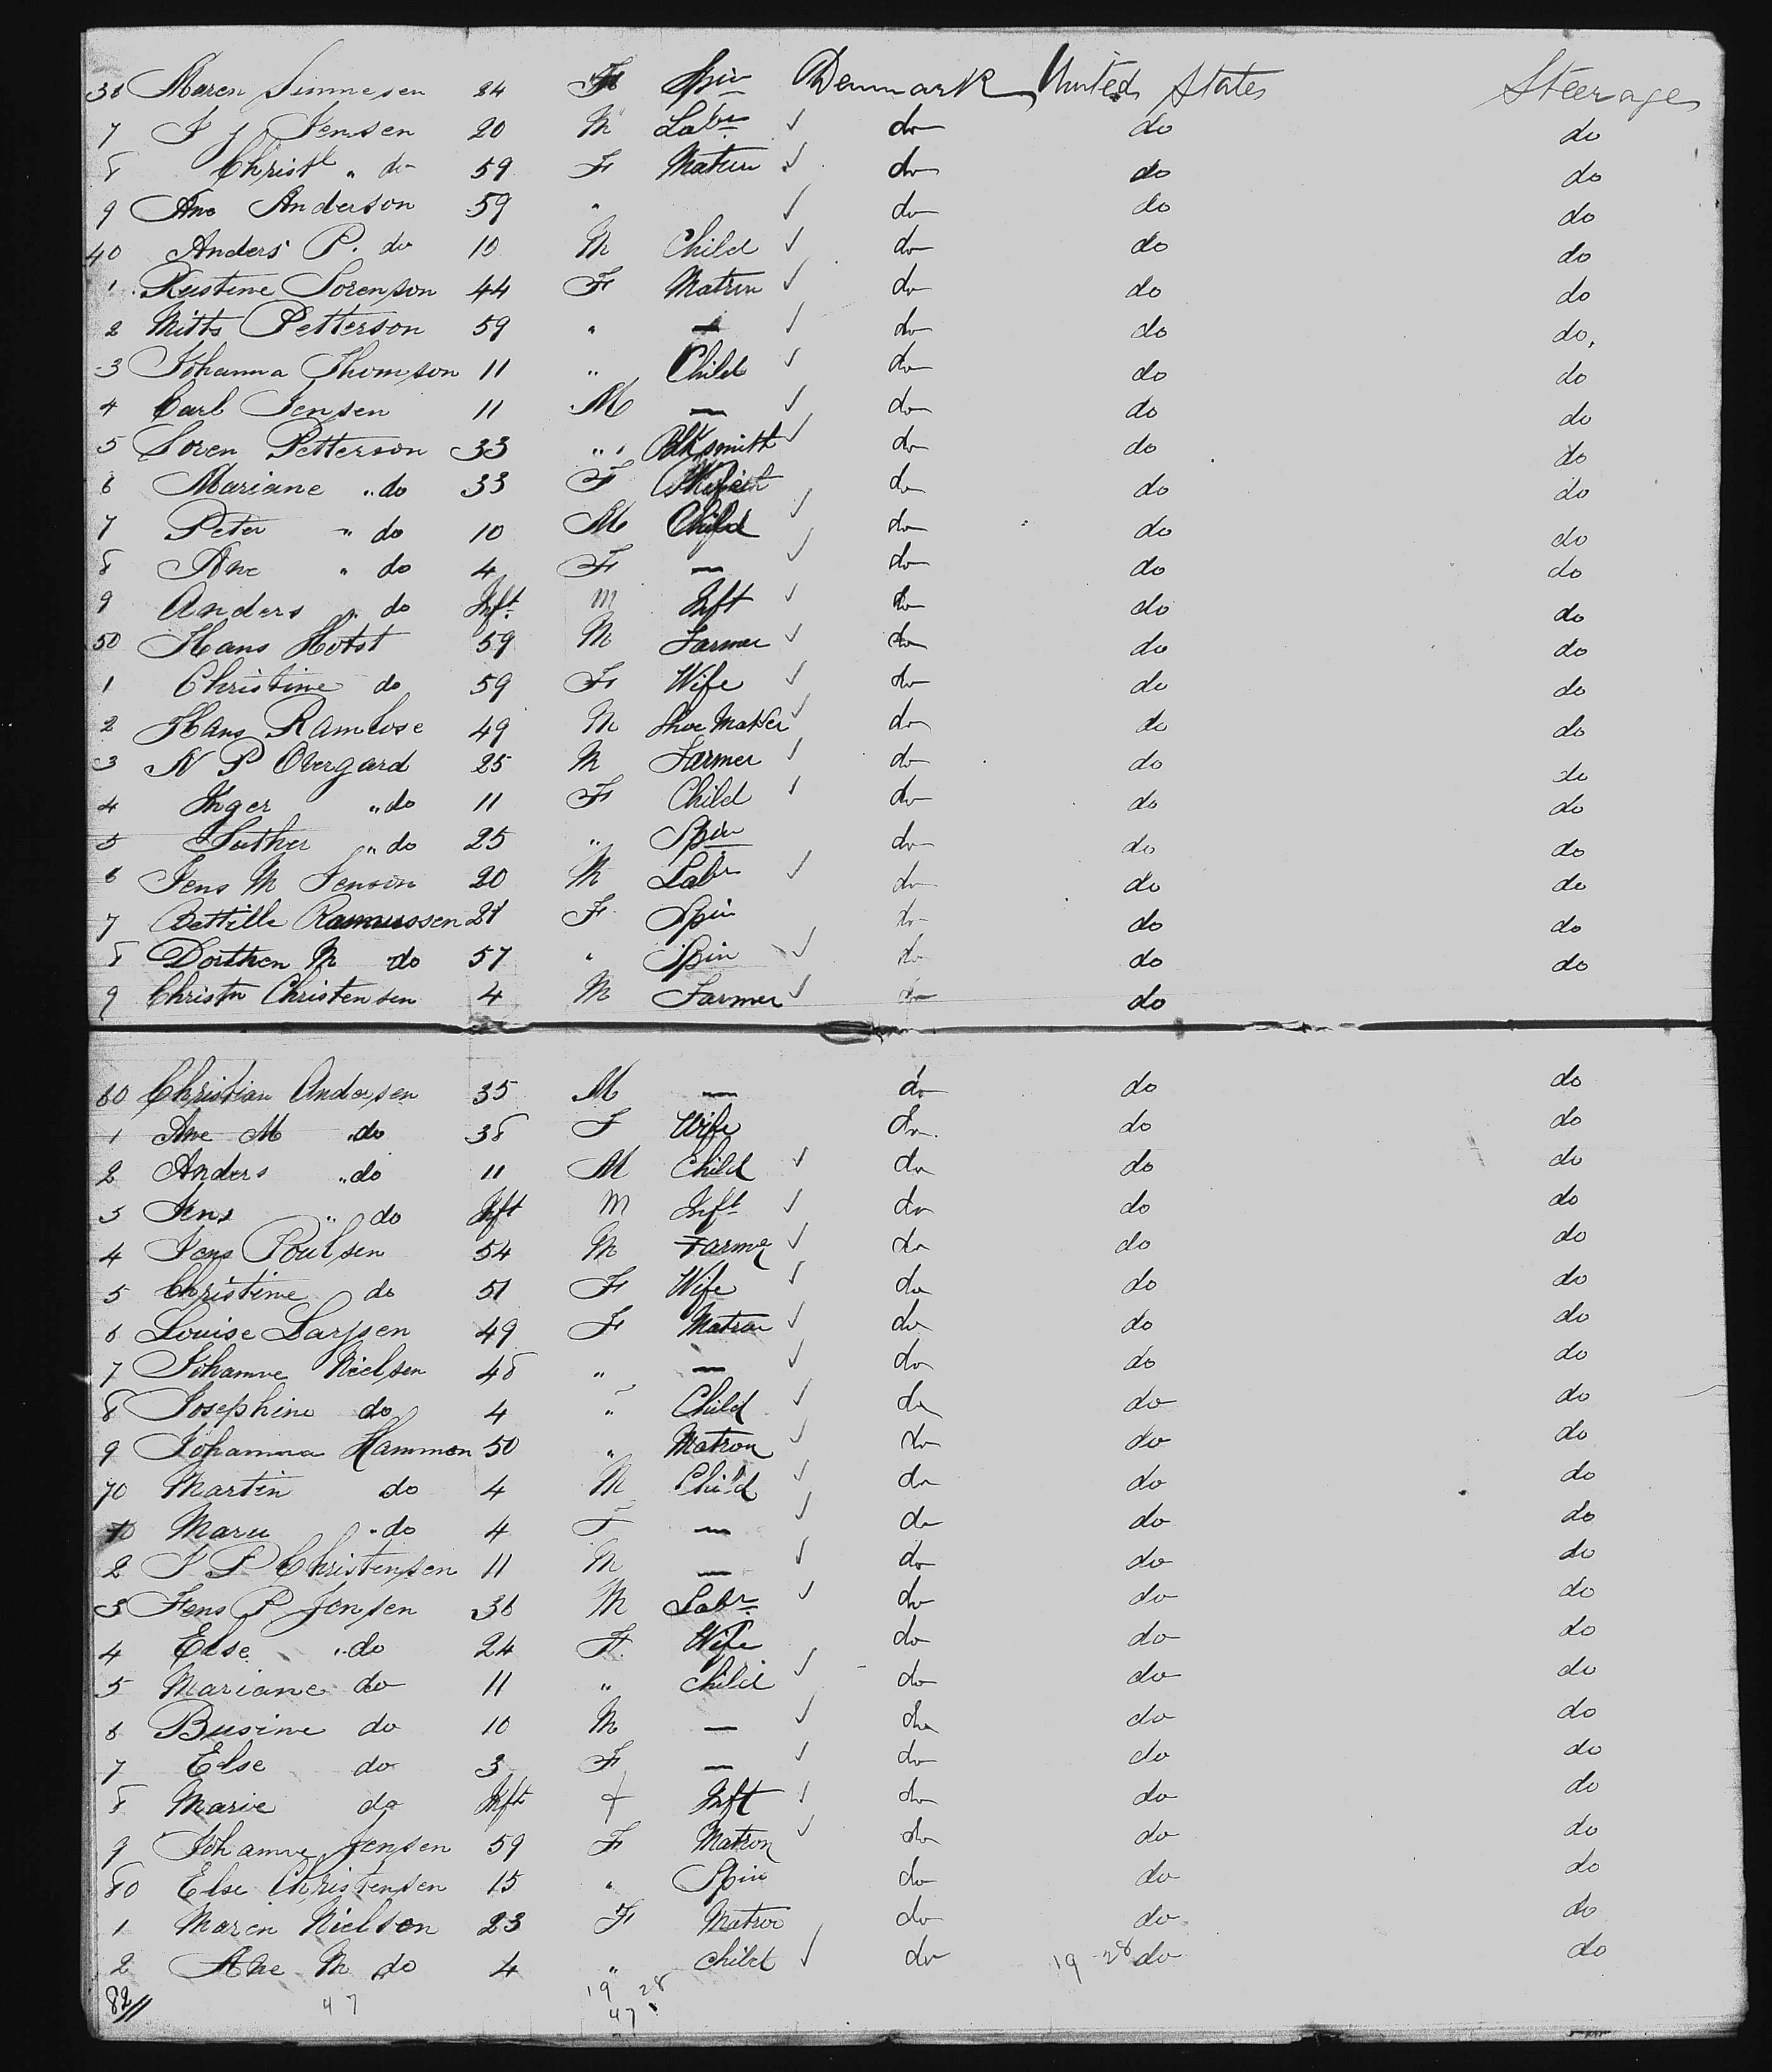 36 Maren Simnesen 24 F Spin Denmark United States Steerage
7 J J Jensen 20 M Labr ✓ do do do
8 Christe " do 59 F Matrn ✓ do do do
9 Ane Anderson 59 " ✓ do do do
40 Anders P. do 10 M Child ✓ do do do
1 Kistine Sorenson 44 F Matron ✓ do do do
2 Mitts Petterson 59 " — ✓ do do do,
3 Johanna Thomson 11 " Child ✓ do do do
4 Carl Jensen 11 M — ✓ do do do
5 Soren Petterson 33 " Blksmith ✓ do do do
6 Mariane " do 33 F Wife do do do
7 Peter " do 10 M Child ✓ do do do
8 Ane " do 4 F — ✓ do do do
9 Anders " do Inft M Inft ✓ do do do
50 Hans Hotst 59 M Farmer ✓ do do do
1 Christine do 59 F Wife ✓ do do do
2 Hans Ramlose 49 M Shoe Maker ✓ do do do
3 N P Overgard 25 M Farmer ✓ do do do
4 Inger " do 11 F Child ✓ do do do
5 Suther " do 25 " Spin do do do
6 Jens M Jenson 20 M Labr ✓ do do do
7 Bettille Rasmussen 21 F Spin do do do
8 Dorthen M do 57 " Spin ✓ do do do
9 Christn Christensen 4 M Farmer ✓ do do
60 Christian Andersen 35 M — do do do
1 Ane M " do 38 F Wife do do do
2 Anders " do 11 M Child ✓ do do do
3 Jens " do Inft M Inft ✓ do do do
4 Jens Poulsen 54 M Farmer ✓ do do do
5 Christine do 51 F Wife ✓ do do do
6 Louise Larssen 49 F Matron ✓ do do do
7 Johanne Nielsen 48 " — ✓ do do do
8 Josephine do 4 " Child ✓ do do do
9 Johanna Hammon 50 " Matron ✓ do do do
70 Martin do 4 M Child ✓ do do do
Marie " do 4 F — ✓ do do do
2 J P Christensen 11 M — ✓ do do do
3 Jens P Jensen 36 M Labr ✓ do do do
4 Else " do 24 F Wife do do do
5 Mariane do 11 " child ✓ do do do
6 Busine do 10 M — ✓ do do do
7 Else do 3 F — ✓ do do do
8 Marie do Inft f Inft ✓ do do do
9 Johanne Jensen 59 F Matron ✓ do do do
80 Else Christensen 15 " Spin do do do
1 Maren Nielsen 23 F Matron do do do
2 Ane M do 4 " child ✓ do 19 28 do do
82// 47 19 28
47